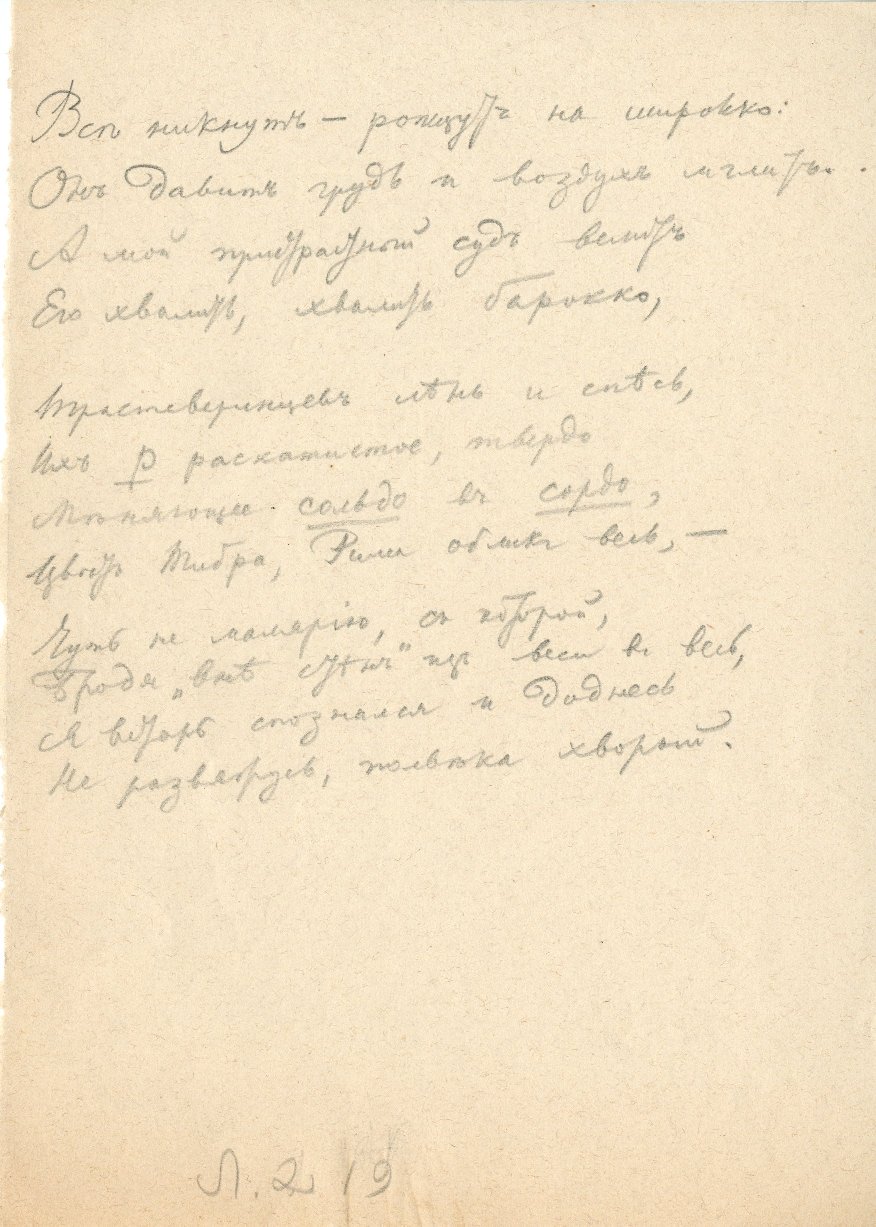 Всѣ никнутъ — ропщутъ на широкко:
Онъ давитъ грудь и воздухъ мглитъ.
А мой пристрастный судъ велитъ
Его хвалить, хвалить барокко,
Трастеверинцевъ лѣнь и спѣсь,
Ихъ р раскатистое, твердо
Мѣняющее сольдо въ сордо,
Цвѣтъ Тибра, Рима обликъ весь, —
Чуть не малярію, съ которой,
Бродя „внѣ стѣнъ" изъ веси въ весь,
Я встарь спознался и доднесь
Не развяжусь, полвѣка хворый.
Л. 2 19